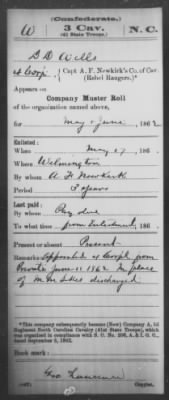 (Confederate.)
W 3 Cav. N. C.
(41 State Troops.)
Wells
4 Corp, Capt A. F. Newkirk's Co. of Cav.
(Rebel Rangers.)
Appears on
Company Muster Roll
of the organization named above,
for May & June, 186 2.
Enlisted:
When May 17, 186
Where Wilmington
By whom A. F. Newkirk
Period 3 years
Last paid:
By whom Pay due
To what time from Enlistment, 186
Present or absent Present
Remarks: Appointed 4 Corpl from
Private June 11 1862 In place
of discharged
*This company subsequently became (New) Company A, 3d
Regiment North Carolina Cavalry (41st State Troops), which
was organized in compliance with S. O. No. 206, A. & I. G. O.,
dated September 3, 1863.
Book mark:
Geo
Copyist.